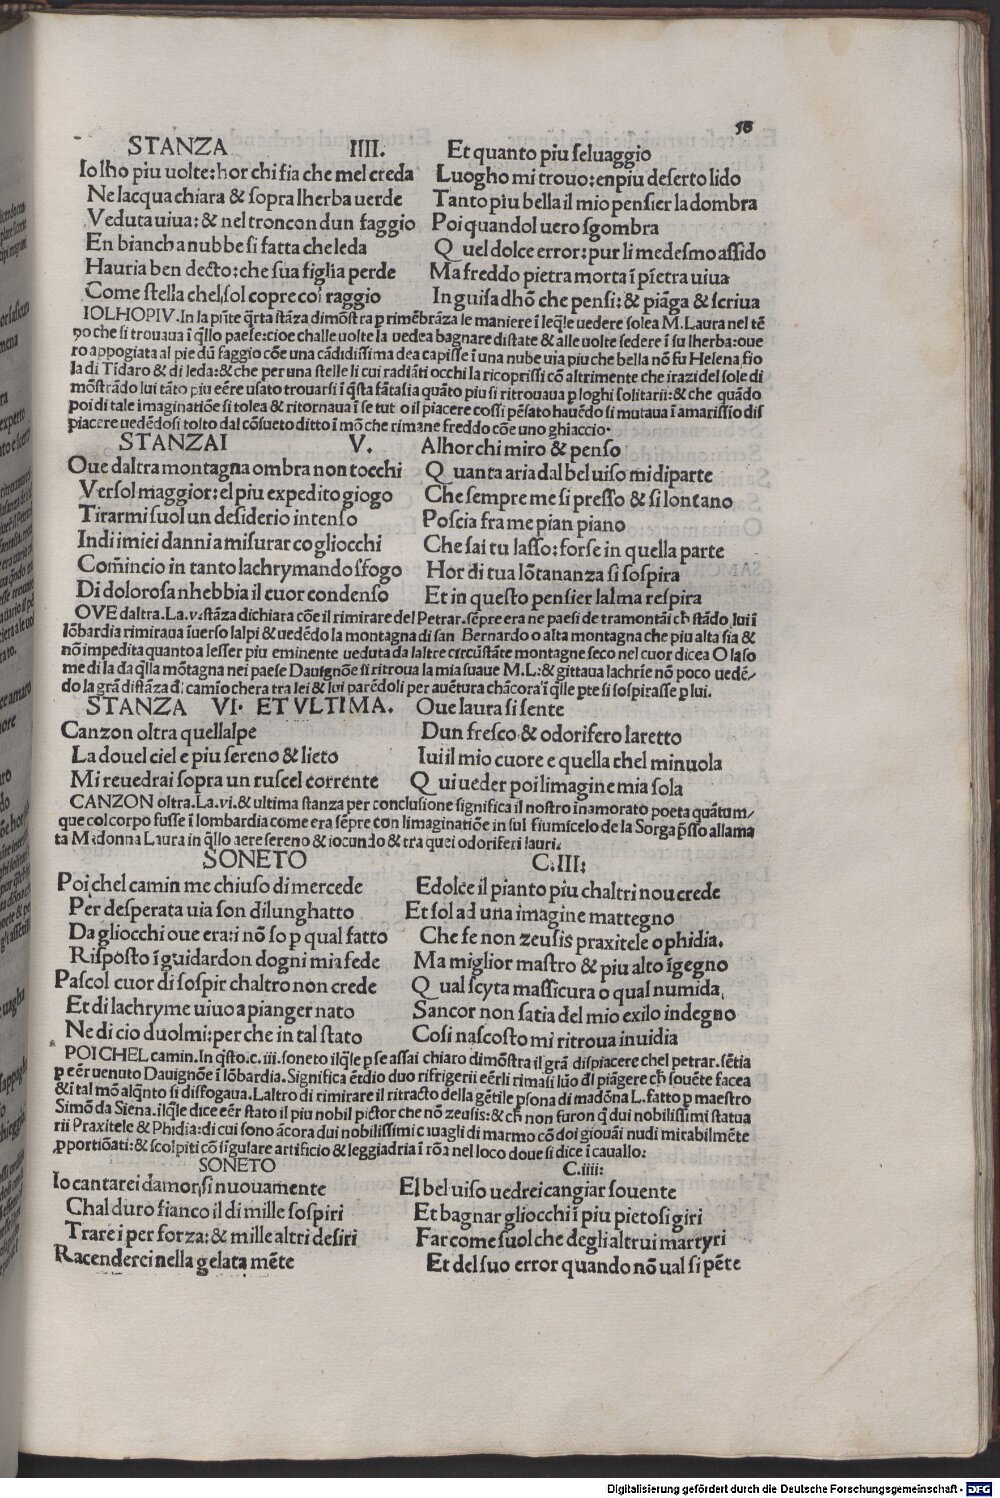 56
STANZA IIII.
Io lho piu uolte: hor chi fia che mel creda
Ne lacqua chiara & sopra lherba uerde
Veduta uiua: & nel troncon dun faggio
En biancha nubbe si fatta cheleda
Hauria ben decto: che sua figlia perde
Come stella chel sol copre col raggio
Et quanto piu seluaggio
Luogho mi trouo: en piu deserto lido
Tanto piu bella il mio pensier la dombra
Poi quandol uero sgombra
Quel dolce error: pur li medesmo assido
Ma freddo pietra morta ī pīetra uiua
In guisa dhō che pensi: & piāga & scriua
IOLHOPIV. In la pñte q̄rta stāza dimōstra p rimēbrāza le maniere ī leq̄le uedere solea M. Laura nel tē
po che si trouaua ī q̄llo paese: cioe challe uolte la uedea bagnare distate & alle uolte sedere ī su lherba: oue
ro appogiata al pie dū faggio cōe una cādidissima dea capisse ī una nube uia piu che bella nō fu Helena fio
la di Tidaro & di leda: & che per una stelle li cui radiāti occhi la ricoprissi cō altrimente che irazi del sole di
mōstrādo lui tāto piu eēre usato trouarsi ī q̄sta fātasia quāto piu si ritrouaua p loghi solitarii: & che quādo
poi di tale imaginatiōe si tolea & ritornaua ī se tut o il piacere cossi pēsato hauēdo si mutaua ī amarissio dis
piacere uedēdosi tolto dal cōsueto ditto ī mō che rimane freddo cōe uno ghiaccio.
STANZAI V.
Oue daltra montagna ombra non tocchi
Versol maggior: el piu expedito giogo
Tirarmi suol un desiderio intenso
Indi imiei danni a misurar co gliocchi
Comīncio in tanto lachrymando sfogo
Di dolorosa nhebbia il cuor condenso
Alhor chi miro & penso
Quanta aria dal bel uiso mi diparte
Che sempre me si presso & si lontano
Poscia fra me pian piano
Che sai tu lasso: forse in quella parte
Hor di tua lōtananza si sospira
Et in questo pensier lalma respira
OVE daltra. La. v. stāza dichiara cōe il rimirare del Petrar. sēpre era ne paesi de tramontāi ch̄ stādo lui ī
lōbardia rimiraua īuerso lalpi & uedēdo la montagna di san Bernardo o alta montagna che piu alta sia &
nō impedita quanto a lesser piu eminente ueduta da laltre circūstāte montagne seco nel cuor dicea O laso
me di la da q̄lla mōtagna nei paese Dauignōe si ritroua la mia suaue M. L: & gittaua lachrie nō poco uedē-
do la grā distāza di camio chera tra lei & lui parēdoli per auētura chācora ī q̄lle pte si sospirasse p lui.
STANZA VI. ET VLTIMA.
Canzon oltra quellalpe
La douel ciel e piu sereno & lieto
Mi reuedrai sopra un ruscel corrente
Oue laura si sente
Dun fresco & odorifero laretto
Iui il mio cuore e quella chel minuola
Qui ueder poi limagine mia sola
CANZON oltra. La. vi. & ultima stanza per conclusione significa il nostro inamorato poeta quātum-
que col corpo fusse ī lombardia come era sēpre con limaginatiōe in sul fiumicelo de la Sorga p̄sso allama
ta Madonna Laura in q̄llo aere sereno & iocundo & tra quei odoriferi lauri.
SONETO C.III:
Poi chel camin me chiuso di mercede
Per desperata uia son dilunghatto
Da gliocchi oue era: i nō so p qual fatto
Risposto ī guidardon dogni mia fede
Pascol cuor di sospir chaltro non crede
Et di lachryme uiuo a pianger nato
Ne di cio duolmi: per che in tal stato
E dolce il pianto piu chaltri nou crede
Et sol ad una imagine mattegno
Che fe non zeusis praxitele o phidia.
Ma miglior mastro & piu alto īgegno
Qual scyta massicura o qual numida,
Sancor non satia del mio exilo indegno
Cosi nascosto mi ritroua inuidia
POI CHEL camin. In q̄sto. c. iii. soneto ilq̄le p se assai chiaro dimōstra il grā dispiacere chel petrar. sētia
p eēr uenuto Dauignōe ī lōbardia. Significa ētdio duo rifrigerii eērli rimasi lūo d̄l piāgere ch̄ souēte facea
& ī tal mō alq̄nto si disfogaua. Laltro di rimirare il ritracto della gētile psona di madōna L. fatto p maestro
Simō da Siena. ilq̄le dice eēr stato il piu nobil pictor che nō zeusis: & ch̄ non furon q̄ dui nobilissimi statua
rii Praxitele & Phidia: di cui sono ācora dui nobilissimi cauagli di marmo cō doi giouāi nudi mirabilmēte
pportiōati: & scolpiti cō sīgulare artificio & leggiadria ī rōa nel loco doue si dice ī cauallo:
SONETO C.iiii:
Io cantarei damor, si nuouamente
Chal duro fianco il di mille sospiri
Trarei per forza: & mille altri desiri
Racenderei nella gelata mēte
El bel uiso uedrei cangiar souente
Et bagnar gliocchi ī piu pietosi giri
Far come suol che degli altrui martyri
Et del suo error quando nō ual si pēte
Digitalisierung gefördert durch die Deutsche Forschungsgemeinschaft - DFG